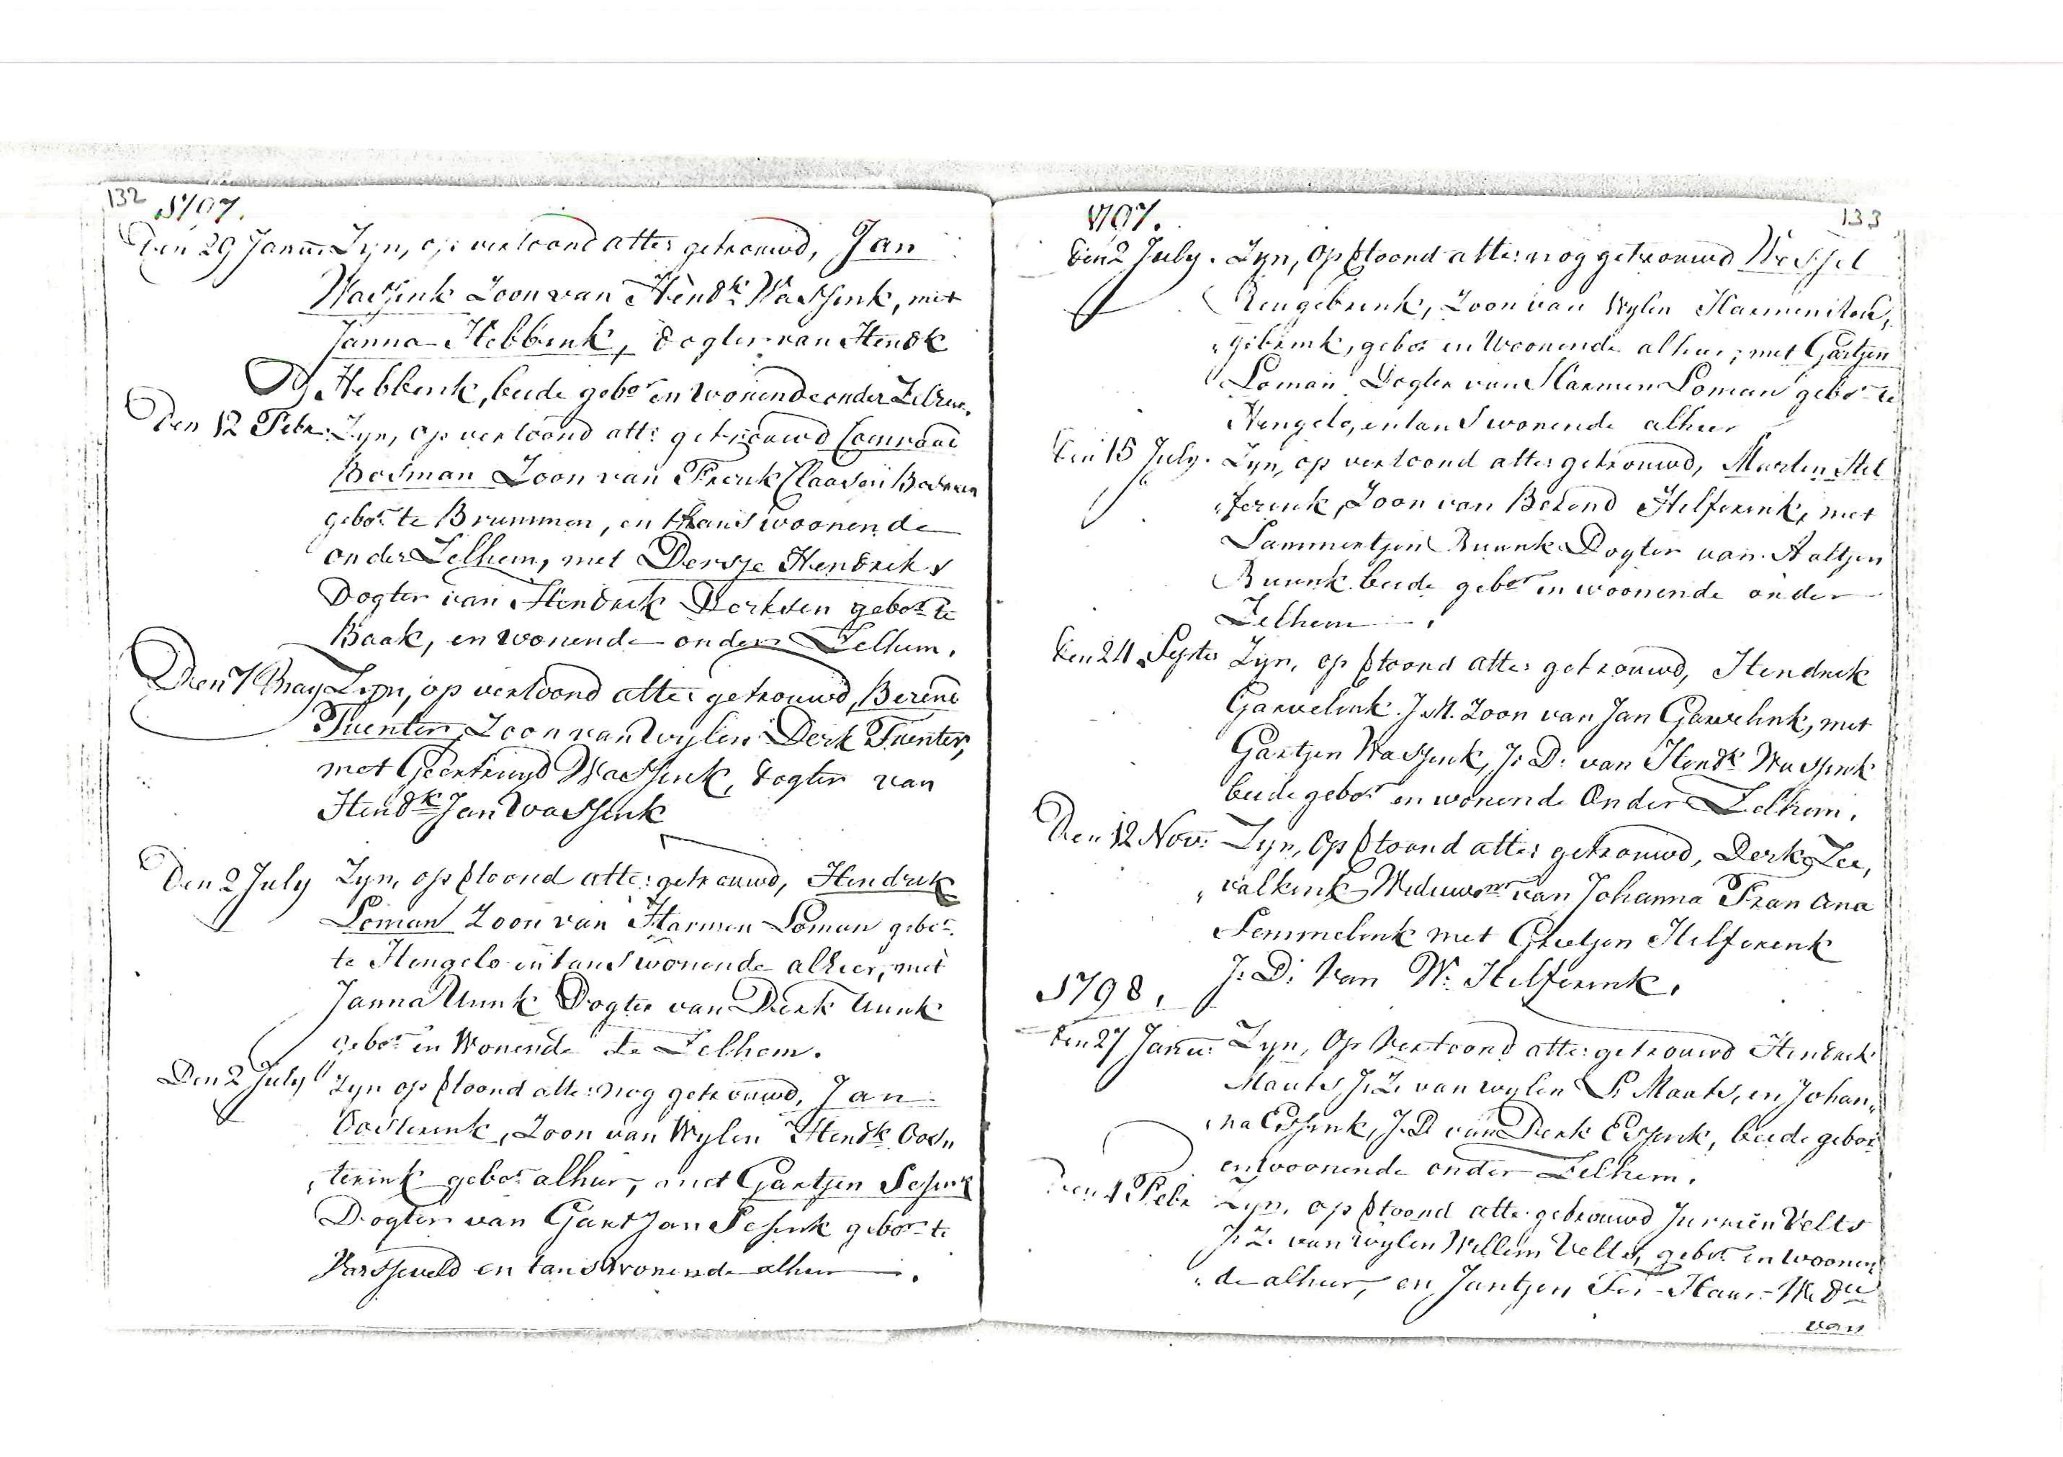 132
1797.
Den 29 Januu: Zyn, op vertoond atte: getrouwd, Jan
Wassink Zoon van Hendk. Wassink, met
Janna Hebbink, dogter van Hendk
Hebbink, beide gebor en wonende onder Zelhem.
Den 12 Febr: Zyn, op vertoond att: getrouwd Coenraad
Bosman Zoon van Frerik Claassen Bosman
gebor. te Brummen, en thans woonende
onder Zelhem, met Dersje Hendriks
Dogter van Hendrik Derksen gebor. te
Baak, en wonende onder Zelhem.
Den 7 May Zyn, op vertoond atte: getrouwd, Berend
Tuenter, Zoon van Wylen Derk Tuenter,
met Geertruyd Wassink, dogter van
Hendk Jan Wassink
Den 2 July Zyn, op ptoond atte: getrouwd, Hendrik
Loman Zoon van Harmen Loman gebor.
te Hengelo en tans wonende alhier, met
Janna Uunk Dogter van Derk Uunk
gebor. en Wonende te Zelhem.
Den 2 July Zyn op ptoond atte: nog getrouwd, Jan
Oosterink, Zoon van Wylen Hendk. Oos"
"terink gebor. alhier, met Gartjen Sessink
Dogter van Gart Jan Sessink gebor. te
Varsseveld en tans wonende alhier.
1797.
133
Den 2 July. Zyn, op ptoond atte: nog getrouwd Wessel
Rengebrink, Zoon van Wylen Harmen Ren,
"gebrink, gebor en Woonende alhier; met Gartjen
Loman Dogter van Harmen Loman gebor. te
Hengelo, en tans wonende alhier
Den 15 July. Zyn, op vertoond atte: getrouwd, Marten Hel
"ferink, Zoon van Berend Helferink, met
Lammertjen Ruunk Dogter van Aaltjen
Ruunk beide gebor en woonende onder
Zelhem.
Den 24 Septr. Zyn, op ptoond atte: getrouwd, Hendrik
Garvelink J.M. Zoon van Jan Garvelink, met
Gartjen Wassink, J: D: van Hendk Wassink
beide gebor en wonende Onder Zelhem.
Den 12 Nov: Zyn, Op ptoond atte: getrouwd, Derk Zee,
"valkink Weduwnr van Johanna Fran Ana
Semmelink met Geertjen Helferink
J: D: Van W: Helferink.
1798.
Den 27 Januu: Zyn, Op Vertoond atte: getrouwd Hendrik
Maats J: Z: van wylen S: Maats, en Johan"
"na Essink, J: D van Derk Essink, beide gebor.
en woonende onder Zelhem.
Den 4 Febr Zyn, op ptoond atte: getrouwd Jurrien Velts
J: Z. van Wylen Willem Velts, gebor. en woonen"
"de alhier, en Jantjen Ter-Haar-Wedue
van